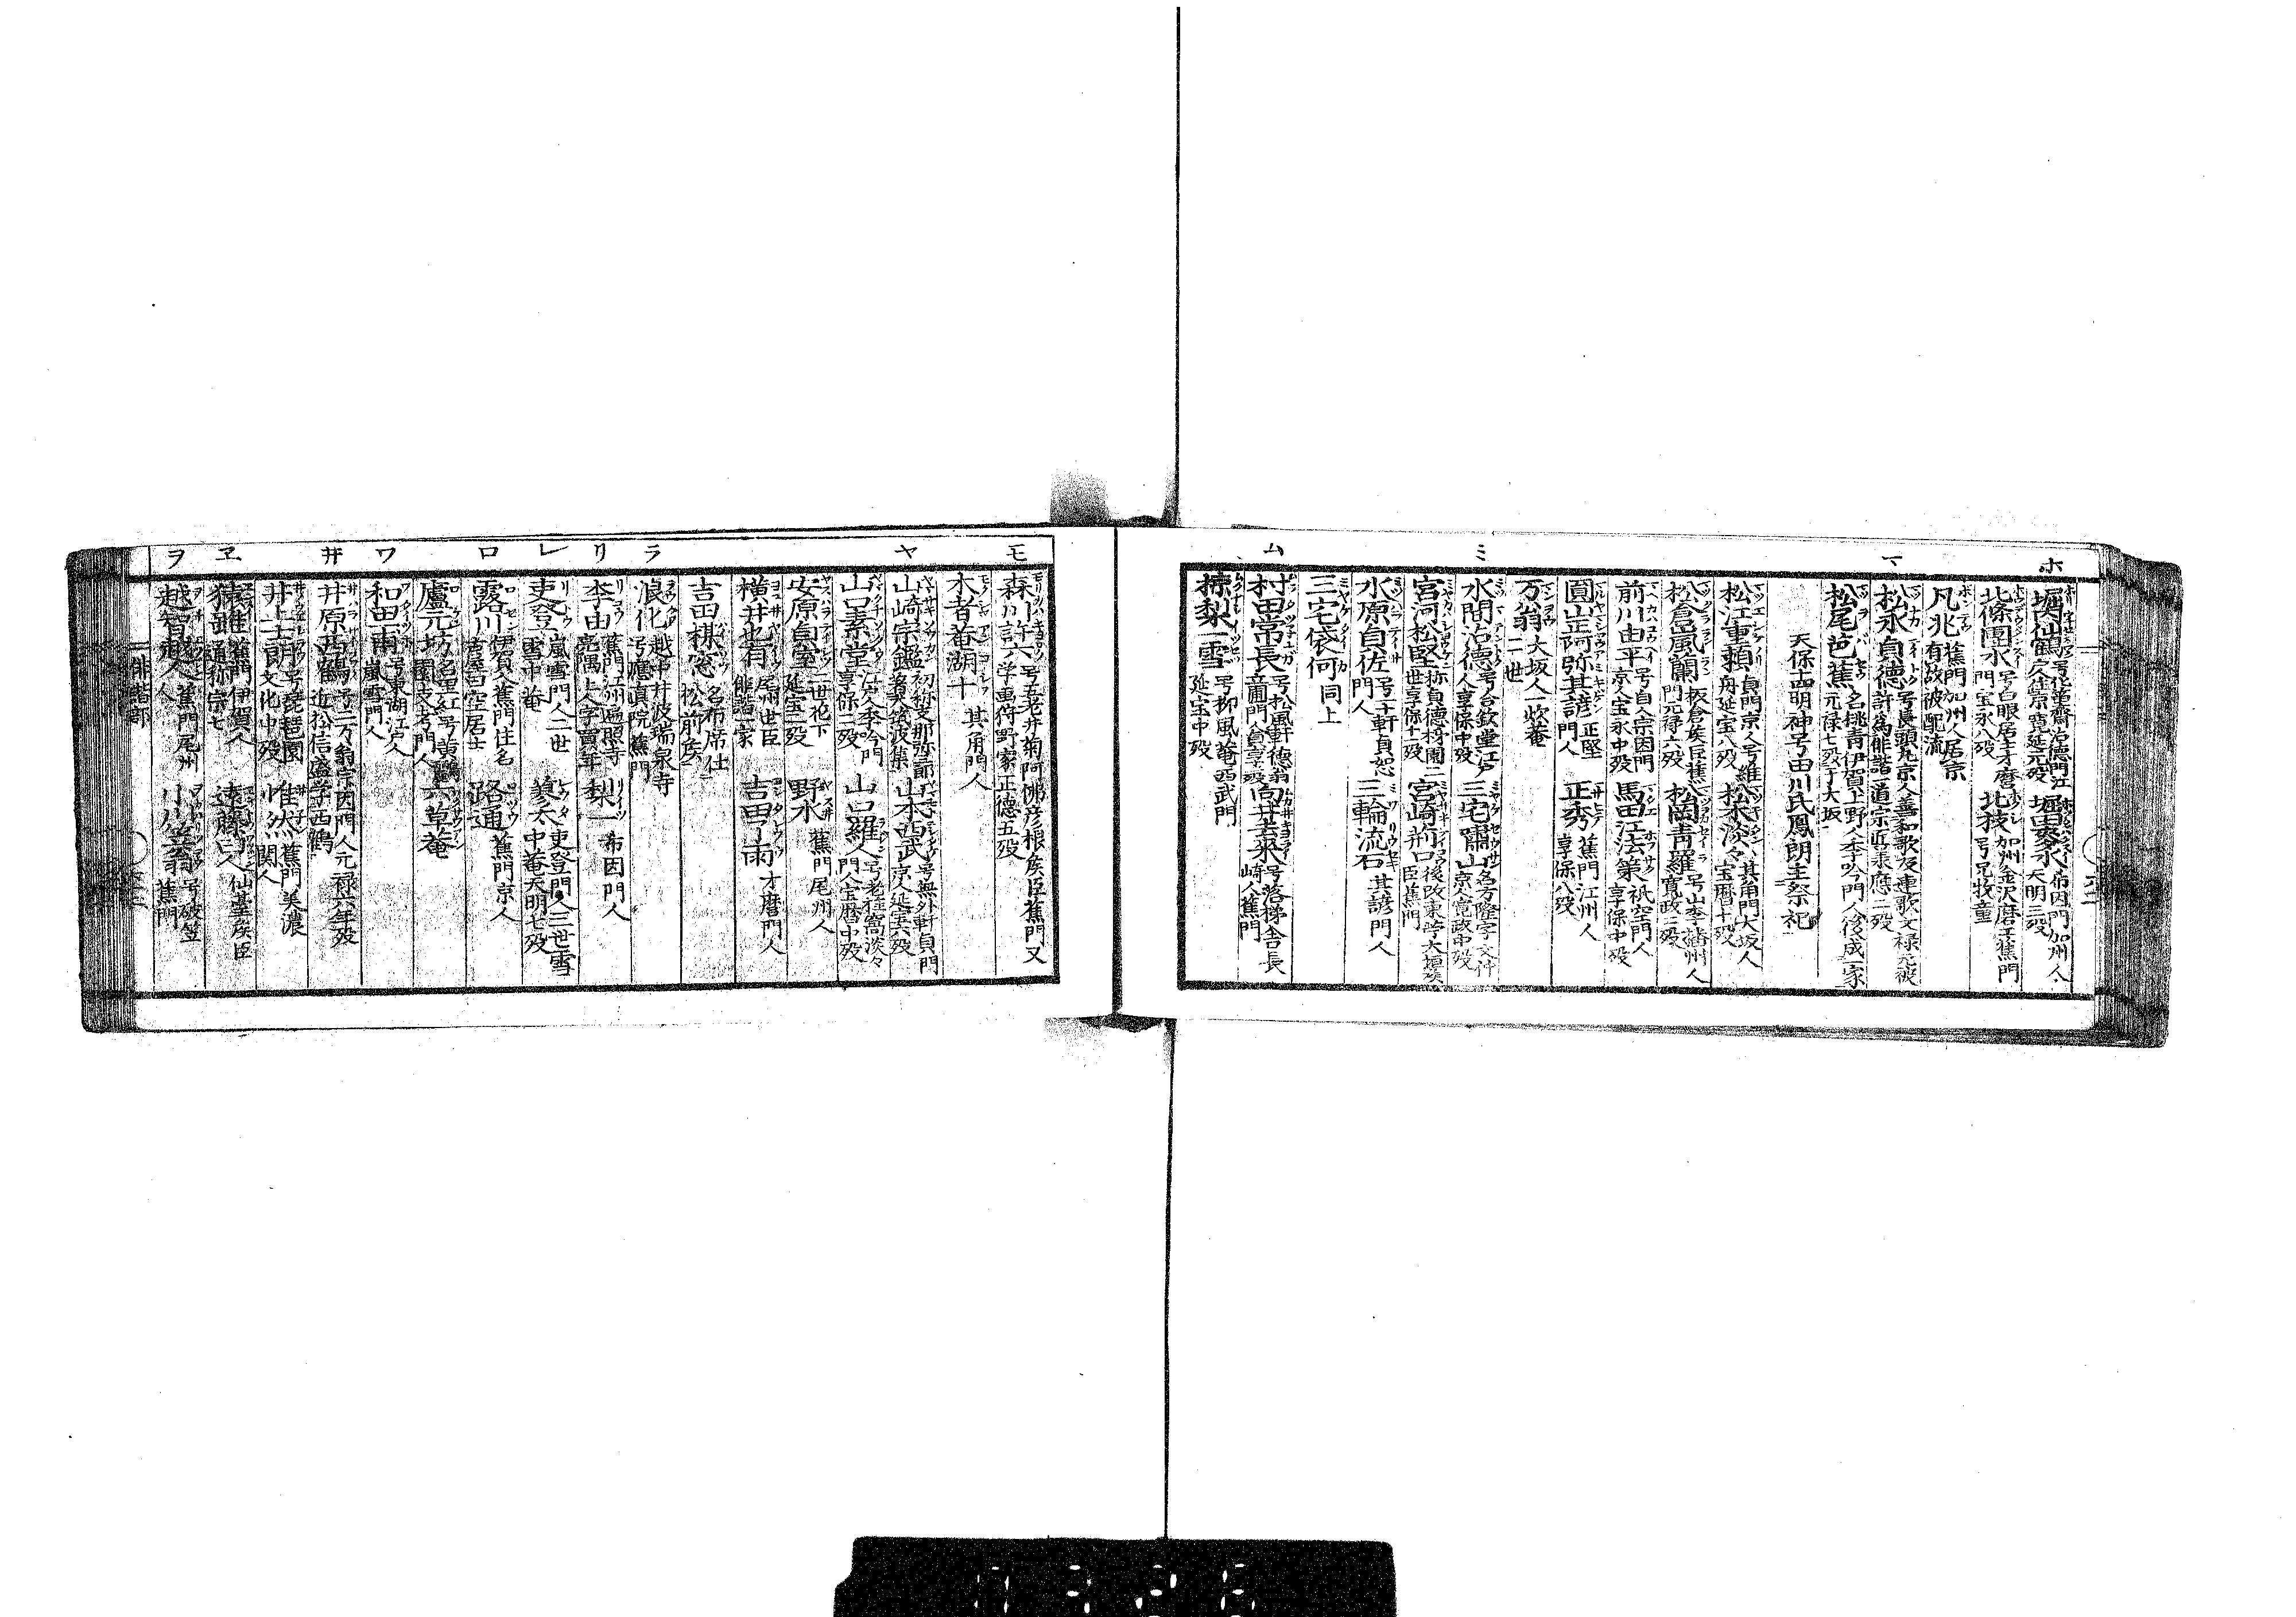 ホ
堀内仙鶴 号化蕫齋沾德門江戸人住京寛延元殁 堀田麥水 希因門加州人天明三殁
北條團水 号白眼居士才麿門宝永八殁 北枝 加州金沢磨工蕉門号兄牧童
凡兆 蕉門加州人居京有故被配流
マ
松永貞德 号長頭丸京人善和歌及連歌文禄元被許爲俳諧道宗匠承應二殁
松尾芭蕉 名桃青伊賀上野人季吟門人後成一家元禄七殁于大坂
天保十四明神号田川氏鳳朗主祭祀
松江重頼 貞門京人号維舟延宝八殁 松木淡々 其角門大坂人宝暦十一殁
松倉嵐蘭 板倉矦臣蕉門元禄六殁 松岡青蘿 号山李坊播州人寛政三殁
前川由平 号自入宗因門京人宝永中殁 馬田江法策 祇空門人享保中殁
圓山正阿弥其諺 正堅門人 正秀 蕉門江州人享保八殁
万翁 大坂人一炊菴二世
ミ
水間沾德 号合歓堂江戸人享保中殁 三宅嘯山 名方隆字文仲京人寛政中殁
宮河松堅 一称貞德材園二世享保十一殁 宮崎荊口 後改東吟大垣矦臣蕉門
水原貞佐 号一十軒貞恕門人 三輪流石 其諺門人
三宅袋何 同上
ム
村田常長 号松風軒德翁 向井去来 号落梯舎長崎人蕉門
椋梨一雪 号柳風菴西武門延宝中殁
モ
森川許六 号五老井菊阿佛彦根矦臣蕉門又学画狩野家正德五殁
木者菴湖十 其角門人
ヤ
山崎宗鑑 初称支那弥三郎 山本西武 号無外軒貞門京人延宝六殁
山口素堂 江戸人季吟門享保二殁 山口羅人 号老狂窩淡々門人宝暦中殁
安原貞室 二世花下延宝二殁 野水 蕉門尾州人
横井也有 尾州世臣俳諧一家 吉田一雨 才麿門人
吉田棋窓 名布席仕松前矦
ラ
浪化 越中井波瑞泉寺号應真院蕉門
リ
李由 蕉門江州遍照寺亮隅上人字買年 梨一 希因門人
吏登 嵐雪門人二世雪中菴 蓼太 吏登門人三世雪中菴天明七殁
レ
ロ
露川 伊賀人蕉門住名古屋号空居士 路通 蕉門京人
廬元坊 名里紅号黄鸝園支考門人 六草菴
ワ
和田一甫 号東湖江戸人嵐雪門人
井
井原西鶴 号二万翁宗因門人元禄六年殁
井上士朗 号琵琶園文化中殁 惟然 蕉門美濃関人
ヱ
猿雖 蕉門伊賀人通称宗七 遠藤曰人 仙䑓矦臣
ヲ
越智越人 蕉門尾州人 小川笠翁 号破笠蕉門
俳諧部